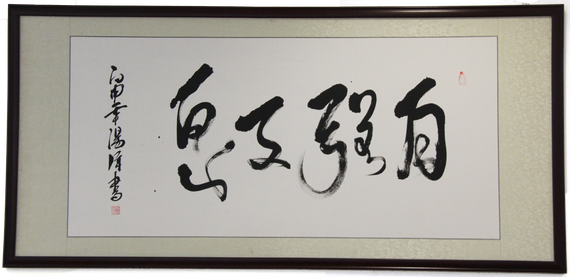 自強不息
丙申年 書